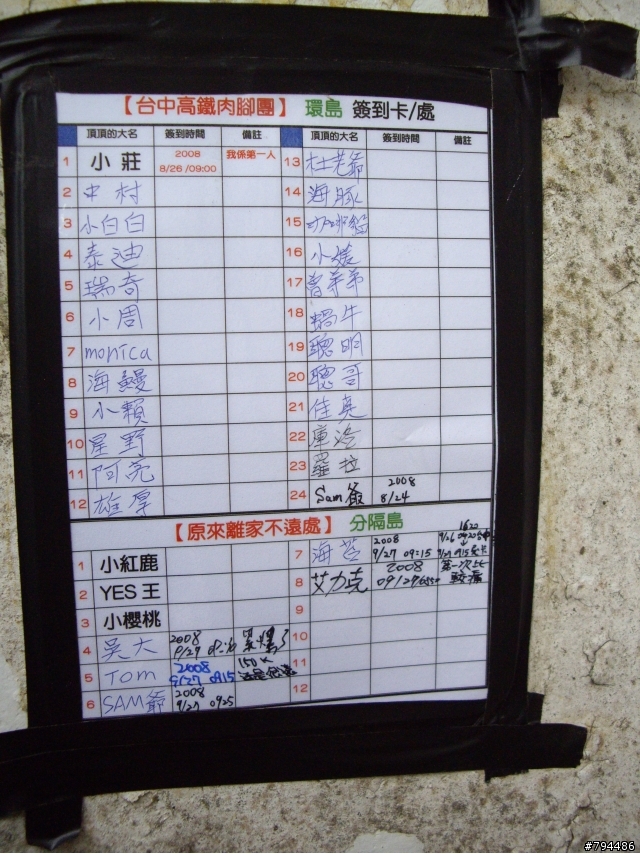 【台中高鐵肉腳團】 環島 簽到卡/處
頂頂的大名 簽到時間 備註 頂頂的大名 簽到時間 備註
1 小莊 2008 8/26 /09:00 我係第一人 13 杜老爺
2 中村 14 海豚
3 小白白 15 咖啡貓
4 泰迪 16 小媛
5 瑞奇 17 曾弟弟
6 小周 18 蝸牛
7 monica 19 聰明
8 海鰻 20 聰哥
9 小賴 21 佳真
10 星野 22 庫洛
11 阿亮 23 羅拉
12 雄厚 24 Sam爺 2008 8/24
【原來離家不遠處】 分隔島
1 小紅鹿 7 海苔 2008 9/27 09:15
2 YES 王 8 艾力克 2008 第一次
3 小櫻桃 9
4 吳大 2008 9/27 10
5 Tom 2008 9/27 0915 150K 11
6 SAM爺 2008 9/27 0925 12
#794486